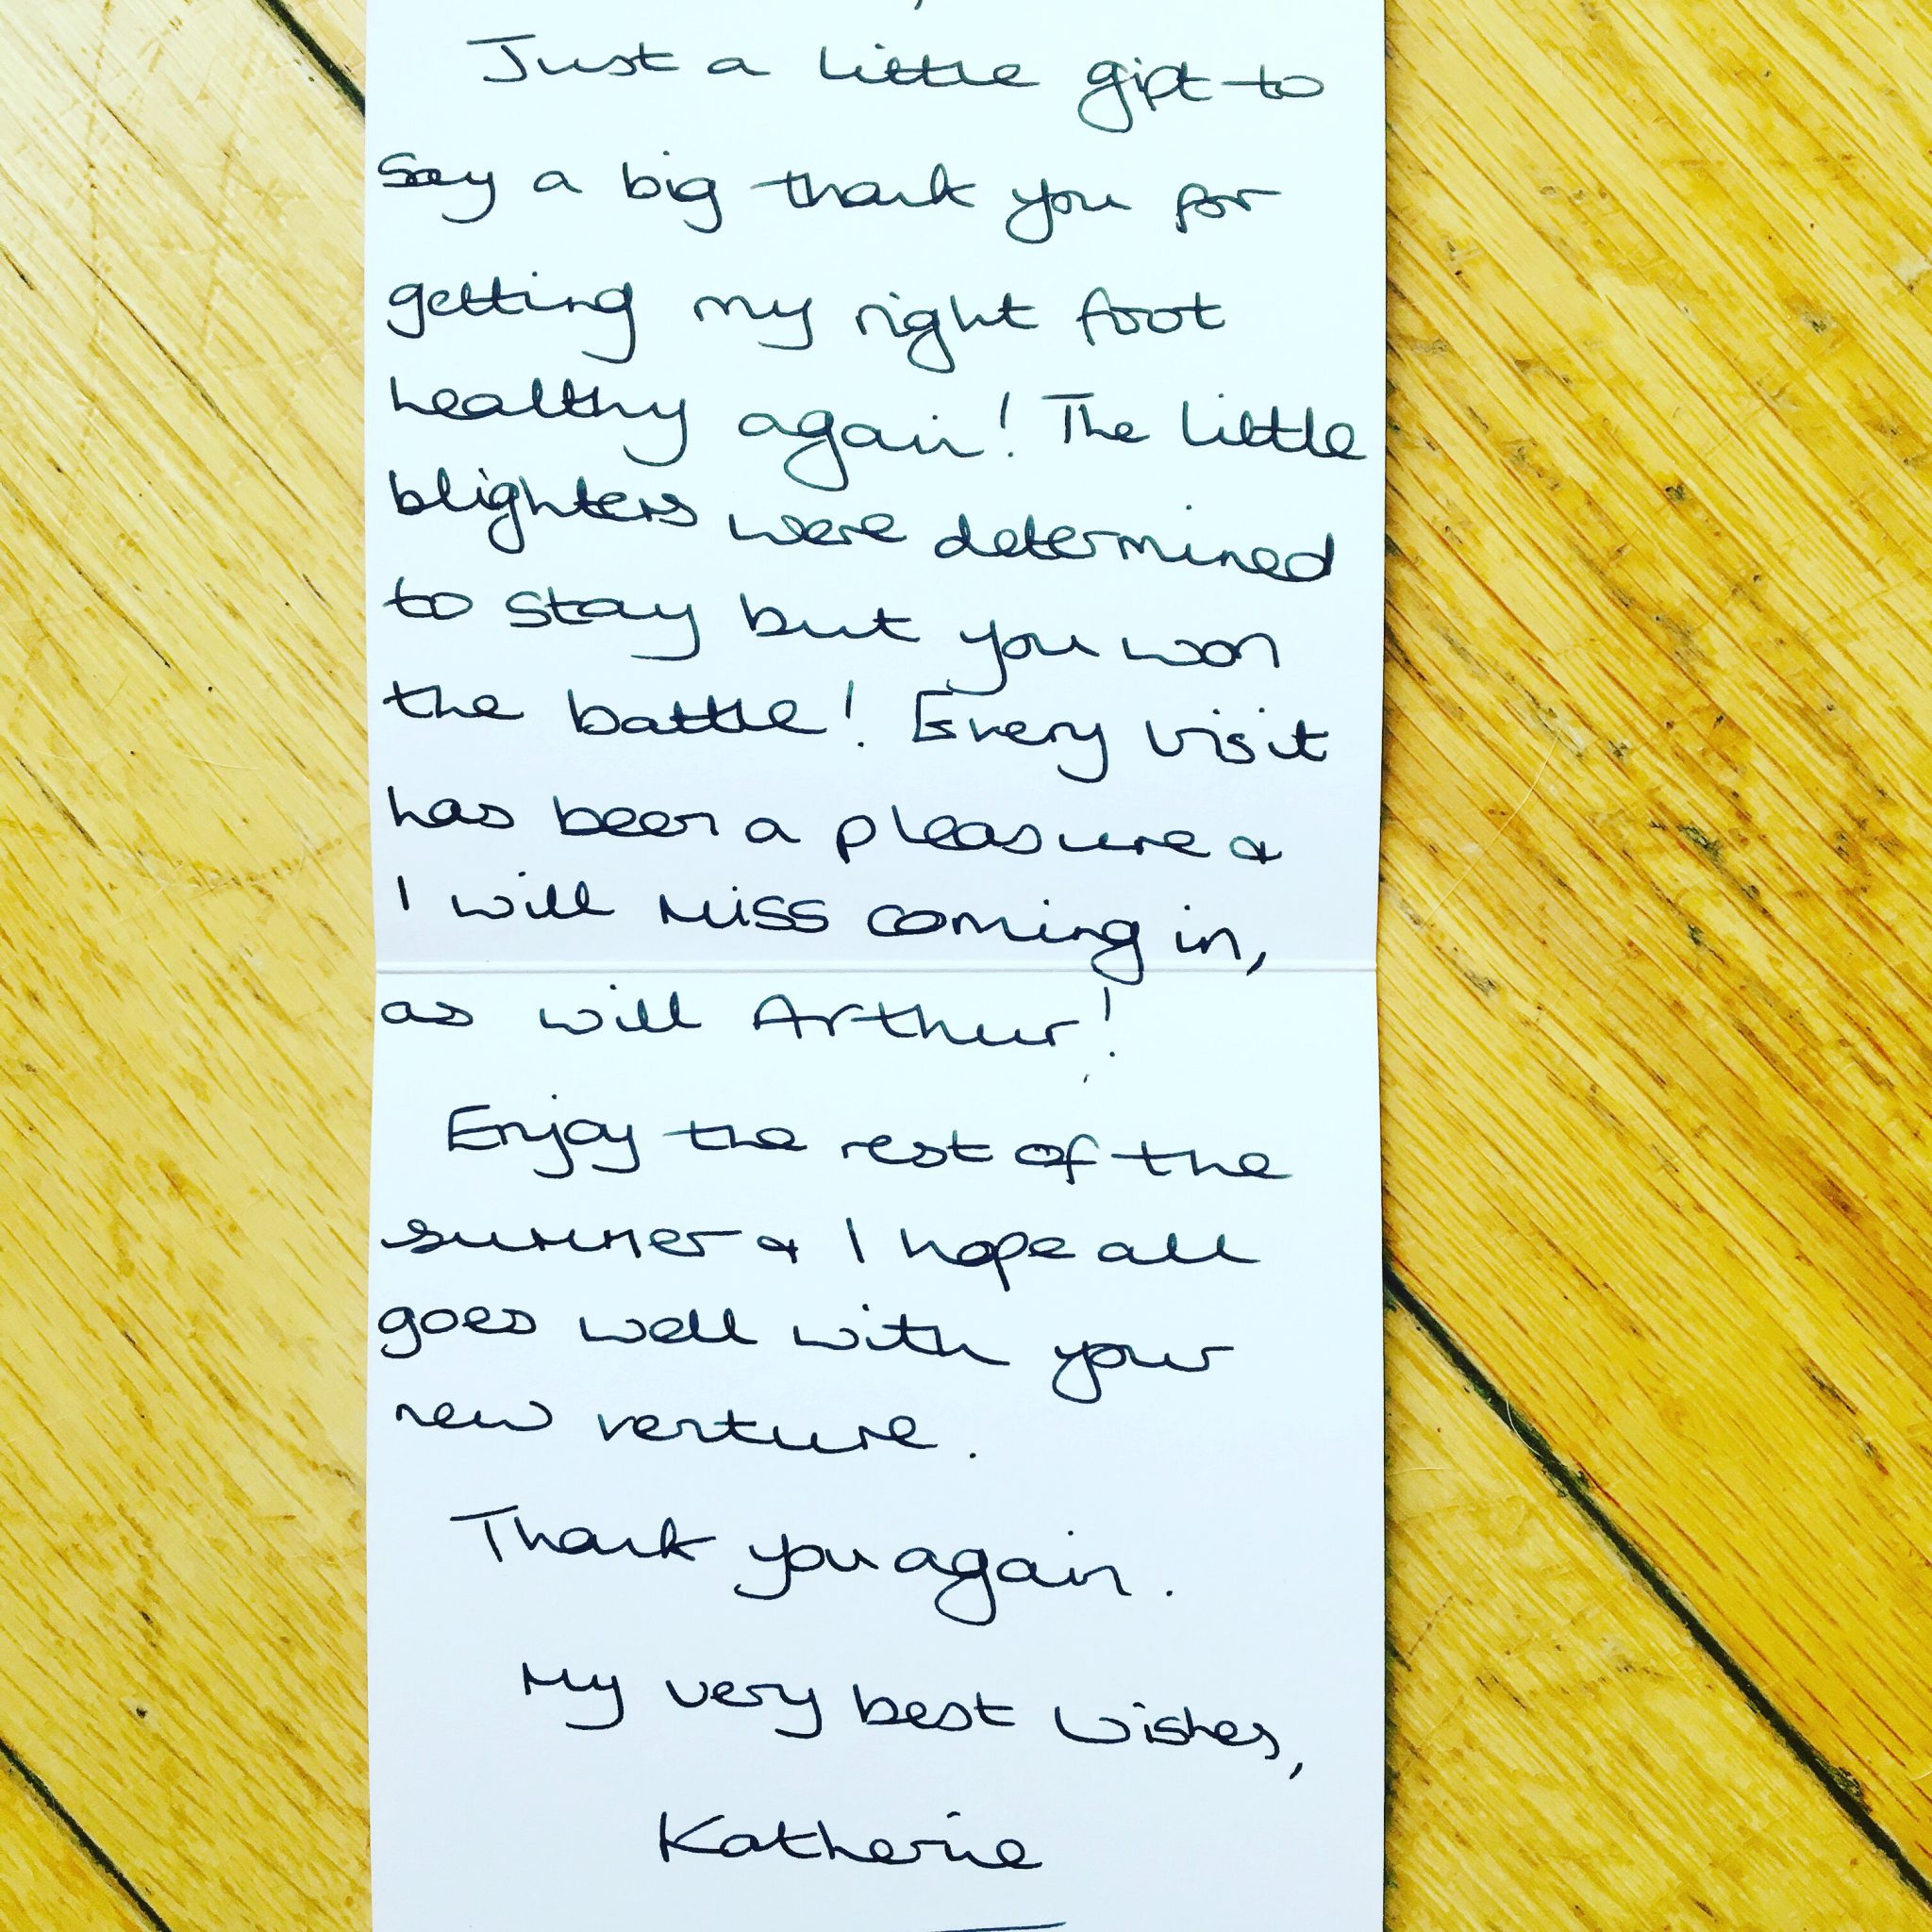 Just a little gift to
say a big thank you for
getting my right foot
healthy again! The little
blighters were determined
to stay but you won
the battle! Every visit
has been a pleasure &
I will miss coming in,
as will Arthur!
Enjoy the rest of the
summer & I hope all
goes well with your
new venture.
Thank you again.
My very best wishes,
Katherine